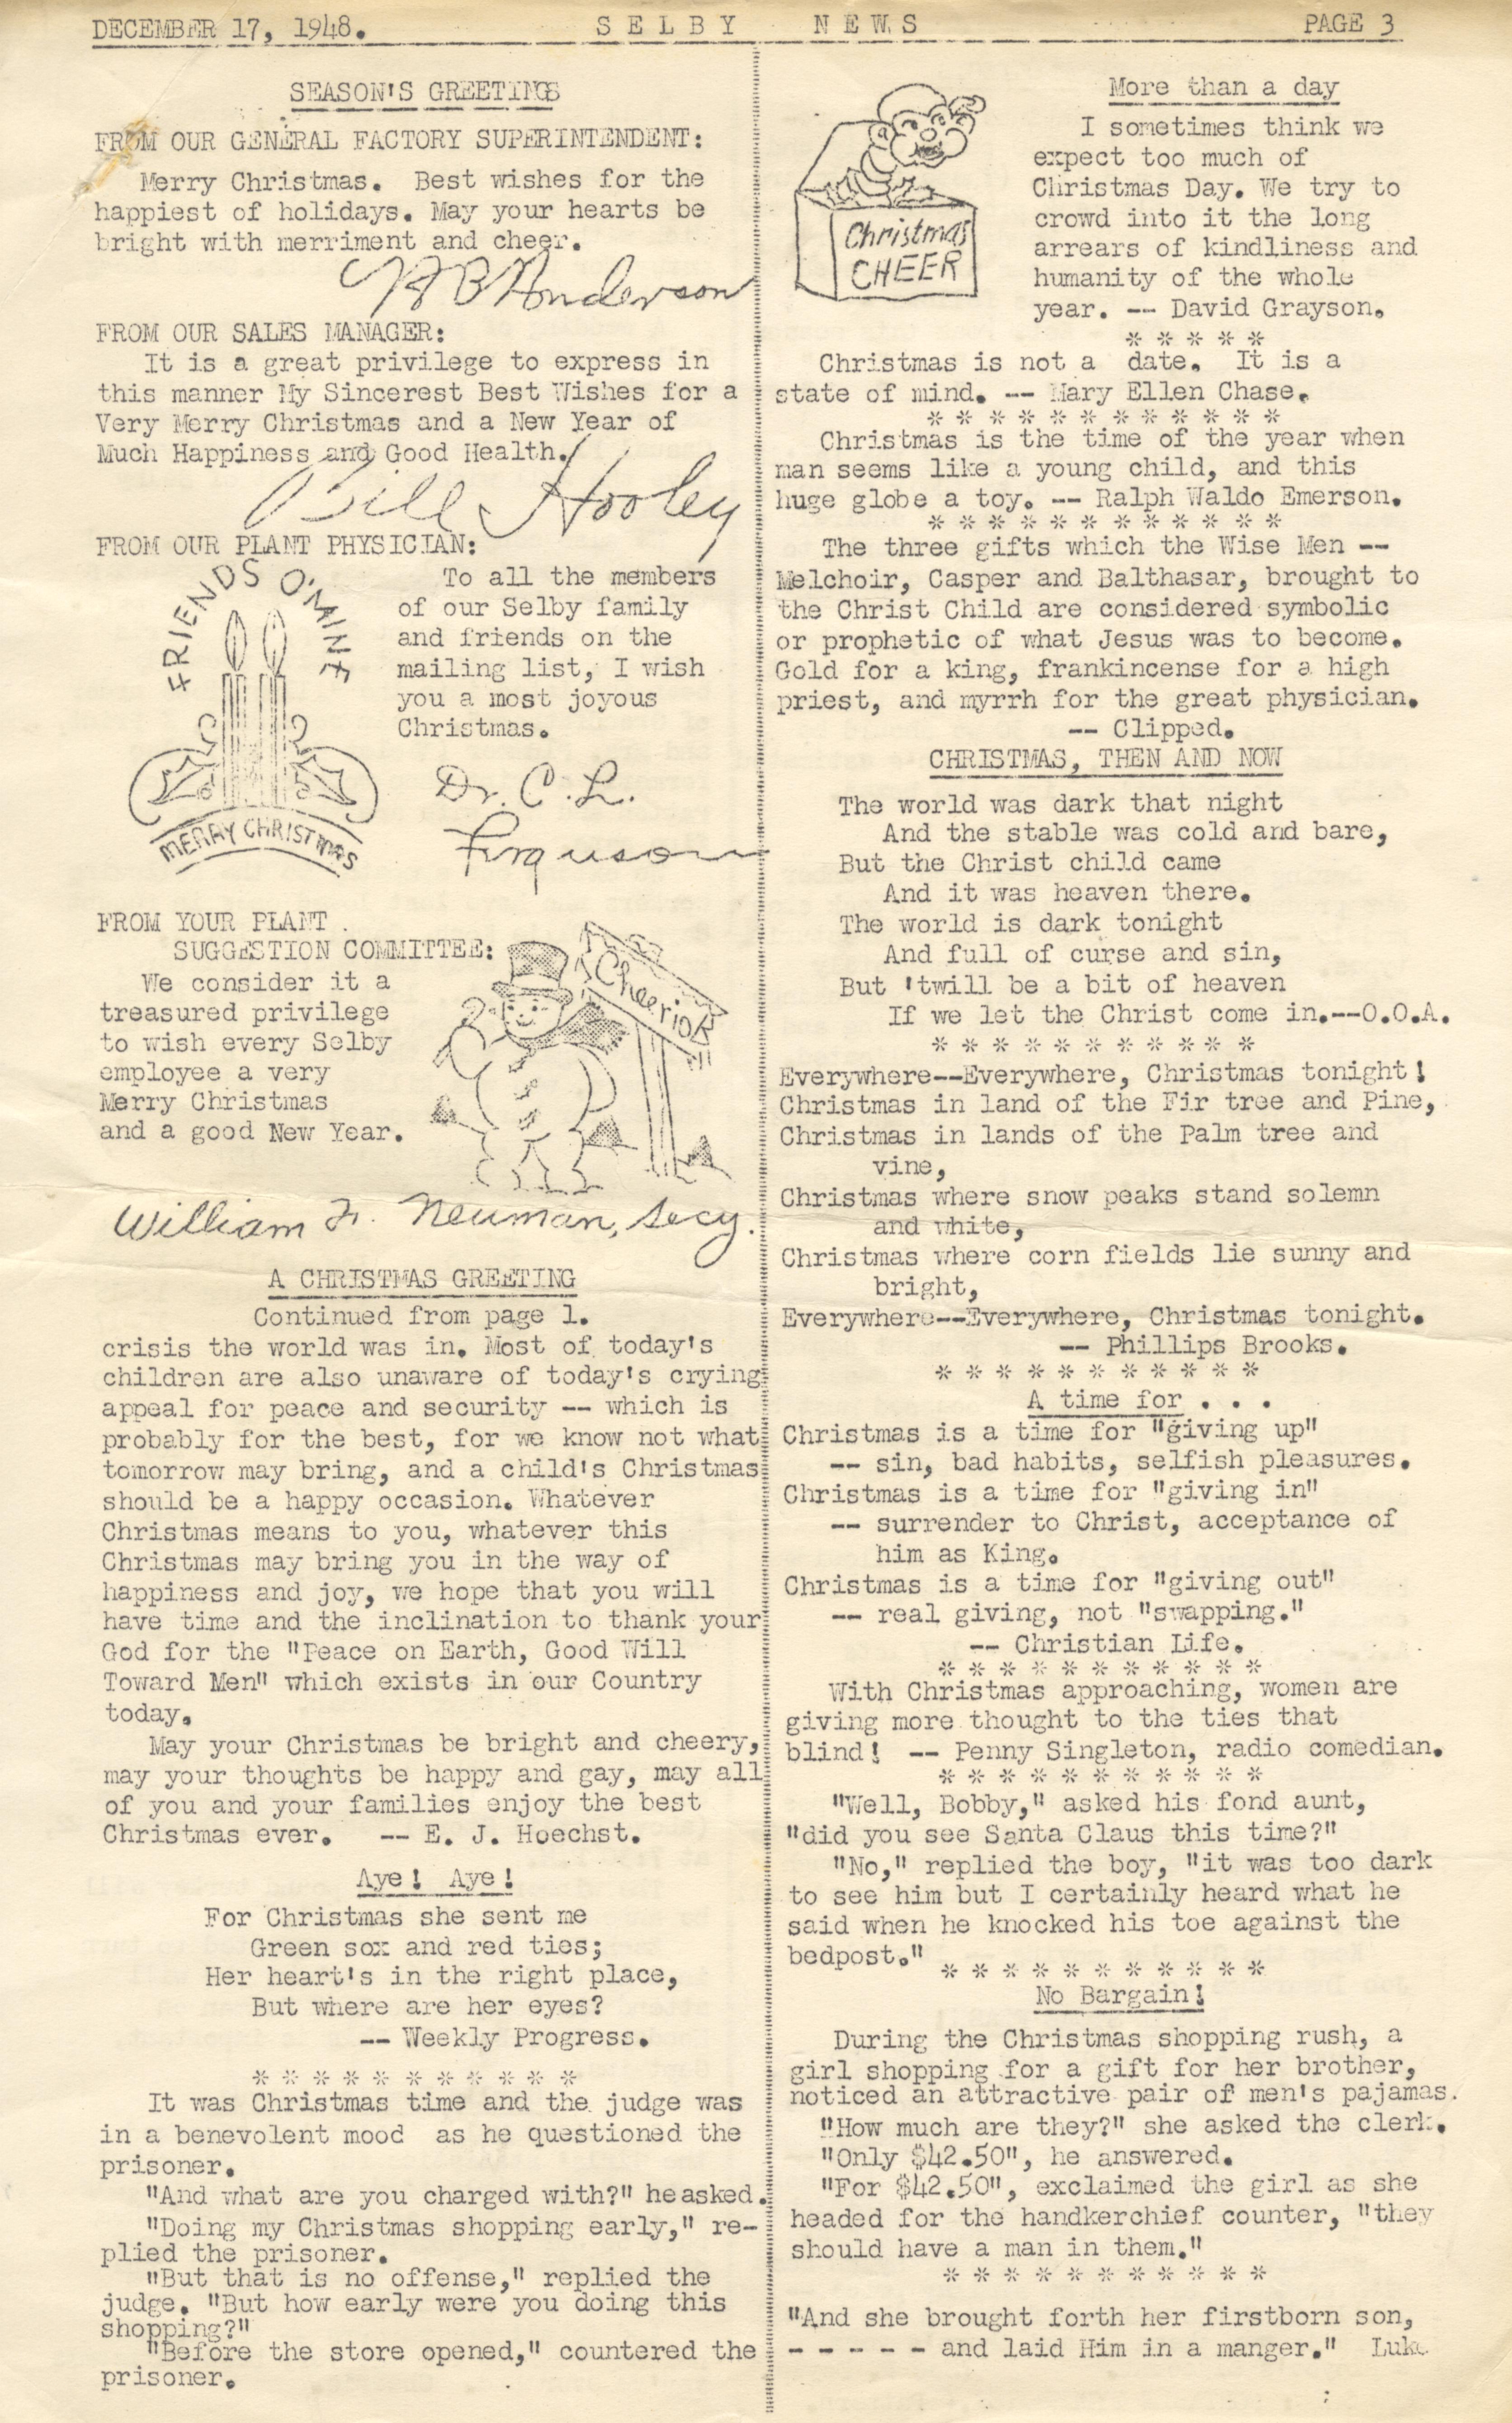 DECEMBER 17, 1948. SELBY NEWS PAGE 3
SEASON'S GREETINGS
FROM OUR GENERAL FACTORY SUPERINTENDENT:
Merry Christmas. Best wishes for the
happiest of holidays. May your hearts be
bright with merriment and cheer.
Anderson
FROM OUR SALES MANAGER:
It is a great privilege to express in
this manner My Sincerest Best Wishes for a
Very Merry Christmas and a New Year of
Much Happiness and Good Health.
Bill Hooley
FROM OUR PLANT PHYSICIAN:
FRIENDS O'MINE
MERRY CHRISTMAS
To all the members
of our Selby family
and friends on the
mailing list, I wish
you a most joyous
Christmas.
Dr. C. L.
Ferguson
FROM YOUR PLANT
SUGGESTION COMMITTEE:
We consider it a
treasured privilege
to wish every Selby
employee a very
Merry Christmas
and a good New Year.
Cheerio
William F. Neuman, Secy.
A CHRISTMAS GREETING
Continued from page 1.
crisis the world was in. Most of today's
children are also unaware of today's crying
appeal for peace and security -- which is
probably for the best, for we know not what
tomorrow may bring, and a child's Christmas
should be a happy occasion. Whatever
Christmas means to you, whatever this
Christmas may bring you in the way of
happiness and joy, we hope that you will
have time and the inclination to thank your
God for the "Peace on Earth, Good Will
Toward Men" which exists in our Country
today.
May your Christmas be bright and cheery,
may your thoughts be happy and gay, may all
of you and your families enjoy the best
Christmas ever. -- E. J. Hoechst.
Aye! Aye!
For Christmas she sent me
Green sox and red ties;
Her heart's in the right place,
But where are her eyes?
-- Weekly Progress.
* * * * * * * * * * *
It was Christmas time and the judge was
in a benevolent mood as he questioned the
prisoner.
"And what are you charged with?" he asked.
"Doing my Christmas shopping early," re-
plied the prisoner.
"But that is no offense," replied the
judge. "But how early were you doing this
shopping?"
"Before the store opened," countered the
prisoner.
Christmas
CHEER
More than a day
I sometimes think we
expect too much of
Christmas Day. We try to
crowd into it the long
arrears of kindliness and
humanity of the whole
year. -- David Grayson.
* * * * *
Christmas is not a date. It is a
state of mind. -- Mary Ellen Chase.
* * * * * * * * * * * *
Christmas is the time of the year when
man seems like a young child, and this
huge globe a toy. -- Ralph Waldo Emerson.
* * * * * * * * * * * *
The three gifts which the Wise Men --
Melchoir, Casper and Balthasar, brought to
the Christ Child are considered symbolic
or prophetic of what Jesus was to become.
Gold for a king, frankincense for a high
priest, and myrrh for the great physician.
-- Clipped.
CHRISTMAS, THEN AND NOW
The world was dark that night
And the stable was cold and bare,
But the Christ child came
And it was heaven there.
The world is dark tonight
And full of curse and sin,
But 'twill be a bit of heaven
If we let the Christ come in.--O.O.A.
* * * * * * * * * * *
Everywhere--Everywhere, Christmas tonight!
Christmas in land of the Fir tree and Pine,
Christmas in lands of the Palm tree and
vine,
Christmas where snow peaks stand solemn
and white,
Christmas where corn fields lie sunny and
bright,
Everywhere--Everywhere, Christmas tonight.
-- Phillips Brooks.
* * * * * * * * * * *
A time for . . .
Christmas is a time for "giving up"
-- sin, bad habits, selfish pleasures.
Christmas is a time for "giving in"
-- surrender to Christ, acceptance of
him as King.
Christmas is a time for "giving out"
-- real giving, not "swapping."
-- Christian Life.
* * * * * * * * * * *
With Christmas approaching, women are
giving more thought to the ties that
blind! -- Penny Singleton, radio comedian.
* * * * * * * * * * *
"Well, Bobby," asked his fond aunt,
"did you see Santa Claus this time?"
"No," replied the boy, "it was too dark
to see him but I certainly heard what he
said when he knocked his toe against the
bedpost."
* * * * * * * * * * *
No Bargain!
During the Christmas shopping rush, a
girl shopping for a gift for her brother,
noticed an attractive pair of men's pajamas.
"How much are they?" she asked the clerk.
"Only $42.50", he answered.
"For $42.50", exclaimed the girl as she
headed for the handkerchief counter, "they
should have a man in them."
* * * * * * * * * * *
"And she brought forth her firstborn son,
- - - - - and laid Him in a manger." Luke